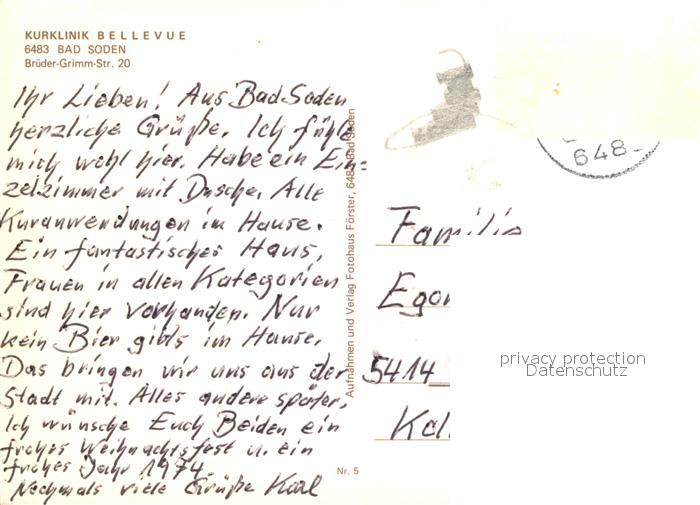 KURKLINIK BELLEVUE
6483 BAD SODEN
Brüder-Grimm-Str. 20
Ihr Lieben! Aus Bad-Soden
herzliche Grüße. Ich fühle
mich wohl hier. Habe ein Ein=
zelzimmer mit Dusche. Alle
Kuranwendungen im Hause.
Ein fantastisches Haus,
Frauen in allen Kategorien
sind hier vorhanden. Nur
kein Bier gibts im Hause.
Das bringen wir uns aus der
Stadt mit. Alles andere später.
Ich wünsche Euch Beiden ein
frohes Weihnachtsfest u. ein
frohes Jahr 1974.
Nochmals viele Grüße Karl
Aufnahmen und Verlag Fotohaus Förster, 648 Bad Soden
Nr. 5
648-
Familie
Egon
5414
Kal
privacy protection
Datenschutz